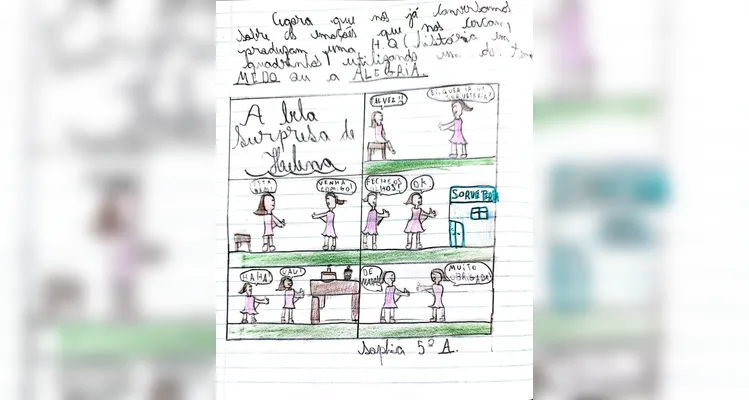 Agora que nós já conversamos
sobre as emoções que nos cercam,
produzam uma H.Q (história em
quadrinhos) utilizando um dos
MEDO ou a ALEGRIA.
A bela
surpresa de
Helena
TALVEZ!!
EI, QUER IR NA
SORVETERIA?
ESTÁ
BEM!
VENHA
COMIGO!
FECHE OS
OLHOS!
OK.
SORVETERIA
HAHA!
UAU!
DE
NADA!
MUITO
OBRIGADA!
Sophia 5º A.